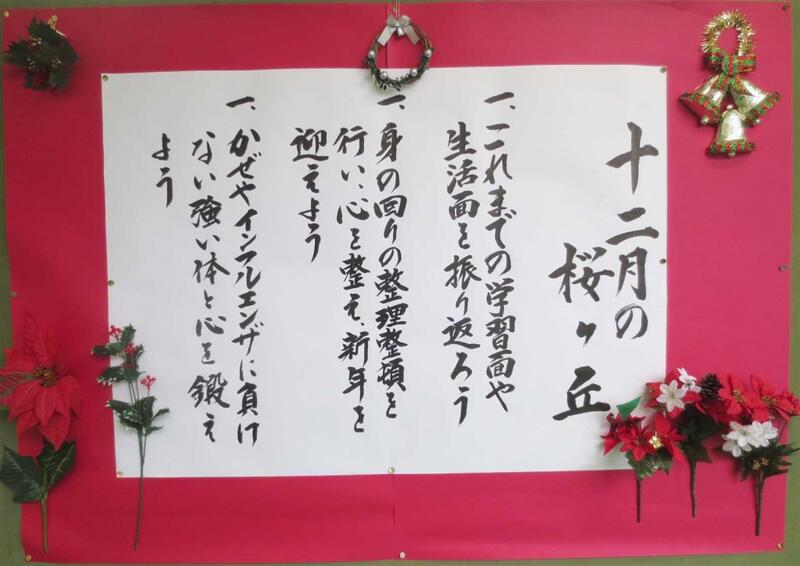 十二月の
桜ヶ丘
一、これまでの学習面や
生活面を振り返ろう
一、身の回りの整理整頓を
行い、心を整え、新年を
迎えよう
一、かぜやインフルエンザに負け
ない強い体と心を鍛え
よう